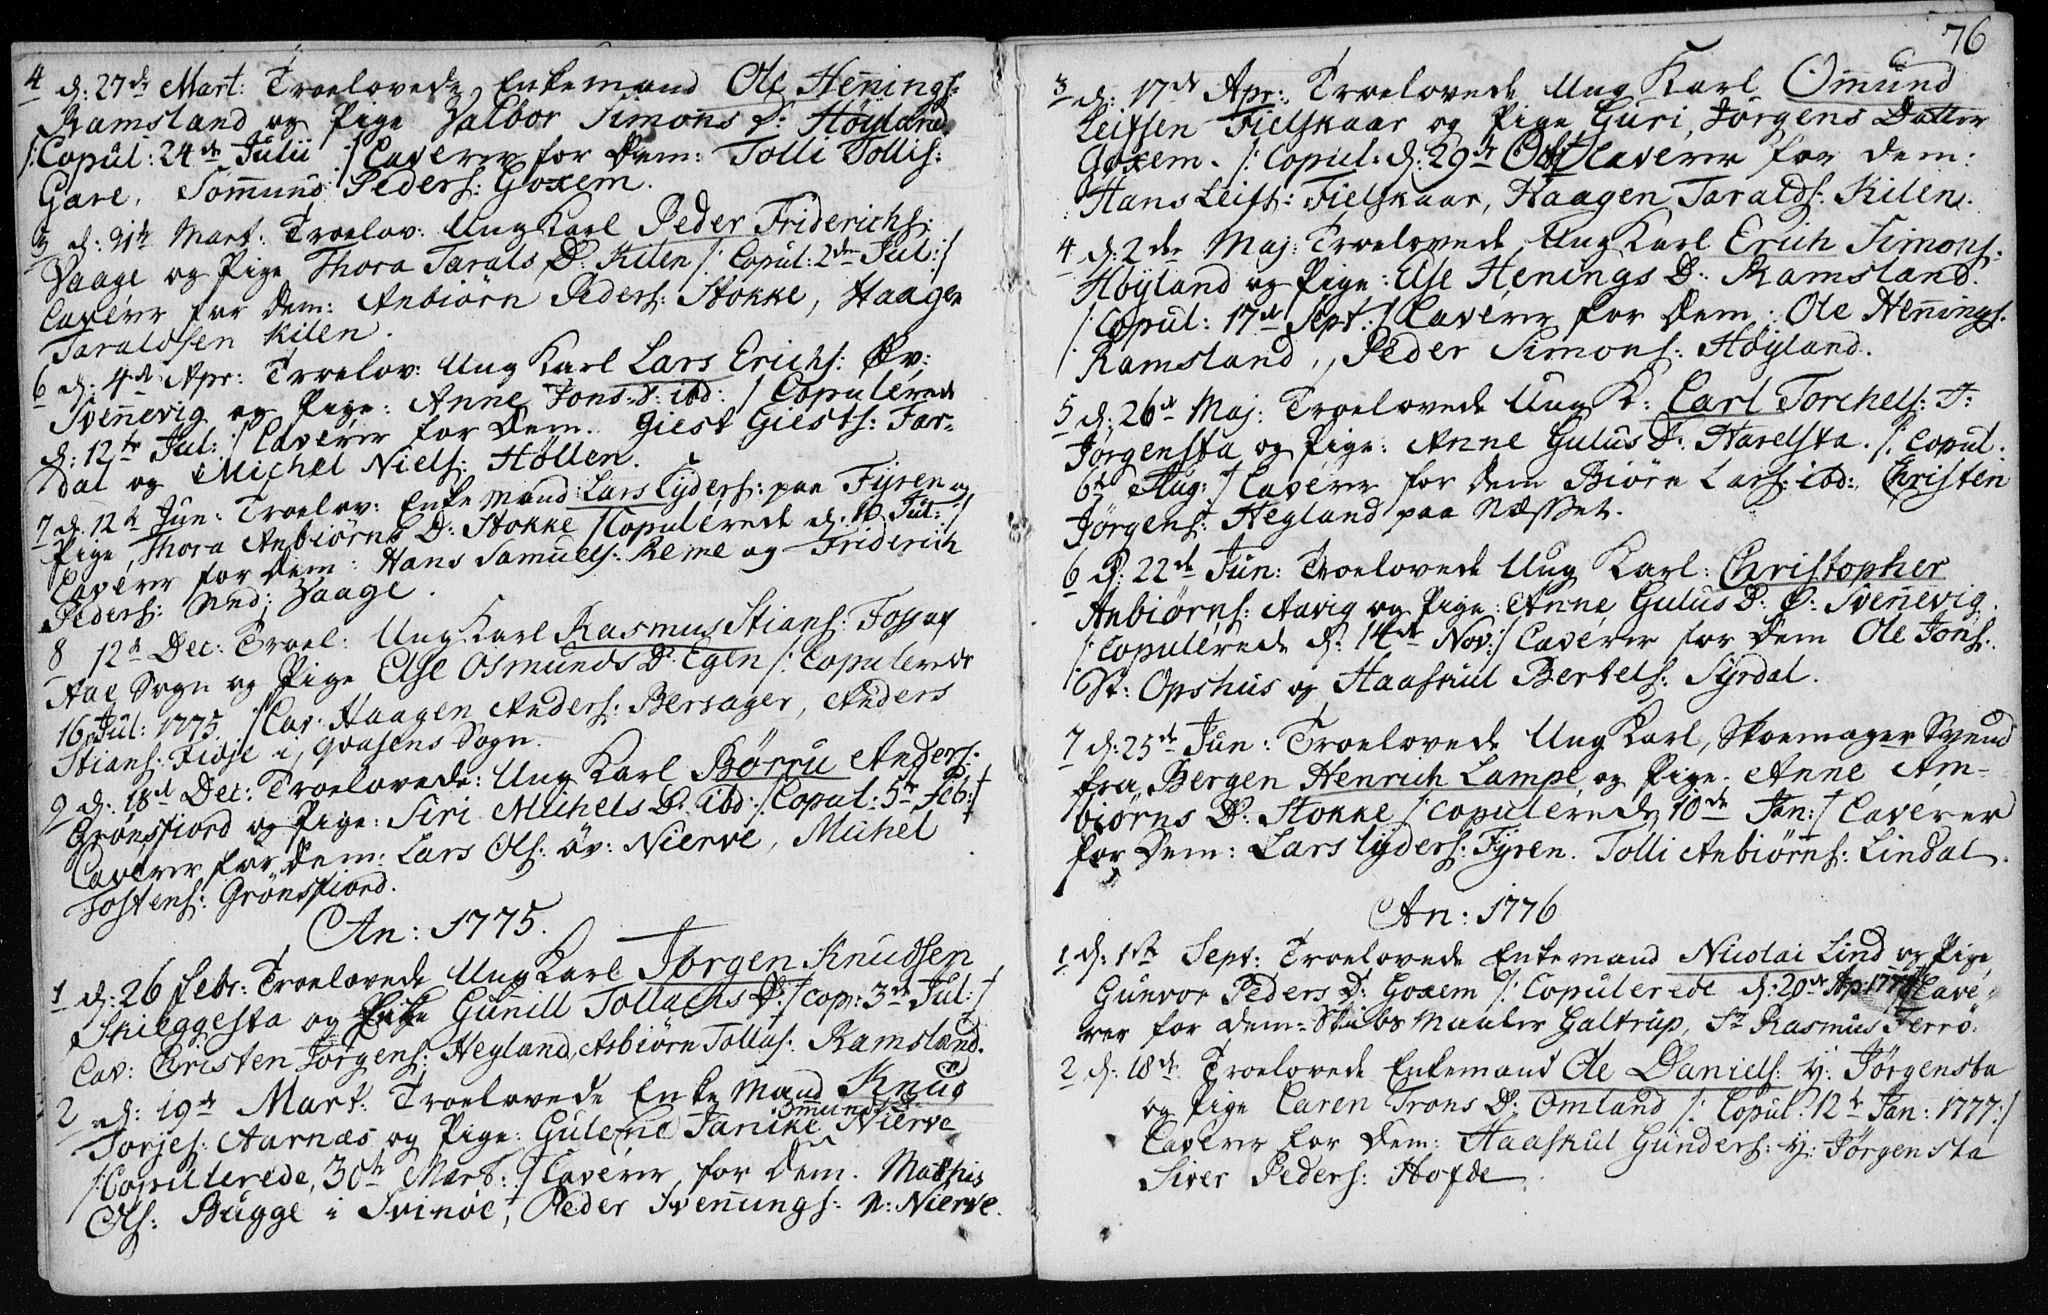 4 d: 27de Mart: Troelovede Enkemand Ole Hen̄ings:
Ramsland og Pige Valbor Simons D: Höyland
/: Copul: 24de Julii :/ Caverer for Dem: Tolli Tollis:
Gare, Som̄und Peders: Goxem.
5 d: 31te Mart: Troelov: Ung Karl Peder Friderichs:
Vaage og Pige Thora Tarals D: Kilen /: Copul: 2den Jul: :/
Caverer for Dem: Anbiörn Peders: Stokke, Haagen
Taraldsen Kilen.
6 d: 4de Apr: Troelov: Ung Karl Lars Erichs: Öv:
Sven̄evig og Pige: Anne Jons D: ibd: /: Copulerede
d: 12te Jul: :/ Caverer for Dem: Giest Giests: Far-
dal og Michel Niels: Höllen.
7 d: 12te Jun: Troelov: Enkemand: Lars Lyders: paa Fyren og
Pige, Thora Anbiörns D: Stokke /: Copulerede d: Jul: :/
Caverer for Dem: Hans Samuels: Reme og Friderich
Peders: Ned: Vaage.
8 12te Dec: Troel: Ung Karl Rasmus Stians: Fossaf
Aae Sogn og Pige Else Osmunds D: Egen /: Copulerede
16 Jul: 1775 :/ Cav: Haagen Anders: Bersager, Anders
Stians: Fidje i Qvasens Sogn.
9 d: 18de Dec: Troelovede: Ung Karl Börru Anders:
Grönsfiord og Pige: Siri Michels D: ibd: /: Copul: 5te Feb: :/
Caverer for Dem: Lars Ols: öv: Nierve, Michel
Jostens: Grönsfiord.
An: 1775.
1 d: 26 Febr: Troelovede Ung Karl Jörgen Knudsen
Skieggesta og Enke Gun̄ill Tollachs D: /: Cop: 3de Jul: :/
Cav: Christen Jörgens: Hegland, Asbiörn Tollas: Ramsland.
2 d: 19de Mart: Troelovede Enke Mand Knud
Torjes: Aarnæs og Pige: Gulene Janike Omunds D: Nierve
/: Copulerede, 30te Mart: :/ Caverer for Dem: Mathis
Ols: Bugge i Svinöe, Peder Sven̄ungs: n: Nierve.
76
3 d: 17de Apr: Troelovede Ung Karl Om̄und
Leifsen Fielskaar og Pige Guri, Jörgens Datter
Goxem. /: Copul: d: 29te Oct :/ Caverer for dem:
Hans Leifs: Fielskaar, Haagen Taralds: Kilen.
4 d: 2den Maj: Troelovede Ung Karl Erich Simons:
Höyland og Pige: Else Henings D: Ramsland.
/: Copul: 17de Sept: :/ Caverer for Dem: Ole Hen̄ings:
Ramsland, Peder Simons: Höyland.
5 d: 26de Maj: Troelovede Ung K: Carl Torchels: J:
Jörgensta og Pige: Anne Gulus D: Harelsta. /: Copul:
6te Aug: :/ Caverer for Dem Biörn Lars: ibd:, Christen
Jörgens: Hegland paa Næsset.
6 d: 22de Jun: Troelovede Ung Karl: Christopher
Anbiörns: Aavig og Pige: Anne Gulus D: Ö: Sven̄evig.
/: Copulerede d: 14de Nov: :/ Caverer for Dem Ole Jons:
St: Opshus og Haaskul Bertels: Syrdal.
7 d: 25de Jun: Troelovede Ung Karl, Skoemager Svend
fra Bergen Henrich Lampe, og Pige: Anne Am-
biörns D: Stokke /: copulerede 10de Jan: :/ Caverer
for Dem: Lars Lyders: Fyren. Tolli Anbiörns: Lindal.
An: 1776
1 d: 1ste Sept: Troelovede Enkemand Nicolai Lind og Pige
Gunvor Peders D: Goxem /: Copulerede d: 20de Ap: 1777 :/ Cave-
rer for dem: Skibs Maaler Galtrup, Sr Rasmus Ferrö:
2 d: 18de Troelovede Enkemand Ole Daniels: Y: Jörgensta
og Pige Caren Trons D: Omland /: Copul: 12te Jan: 1777 :/
Caverer for Dem: Haaskul Gunders: Y: Jörgensta
Siver Peders: Hofde